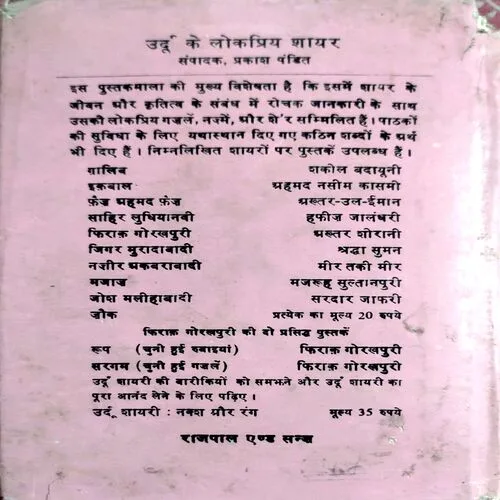 उर्दू के लोकप्रिय शायर
संपादक, प्रकाश पंडित
इस पुस्तकमाला की मुख्य विशेषता है कि इसमें शायर के
जीवन और कृतित्व के संबंध में रोचक जानकारी के साथ
उसकी लोकप्रिय गज़लें, नज़्में, और शे'र सम्मिलित हैं। पाठकों
की सुविधा के लिए यथास्थान दिए गए कठिन शब्दों के अर्थ
भी दिए हैं। निम्नलिखित शायरों पर पुस्तकें उपलब्ध हैं।
ग़ालिब शकील बदायूनी
इक़बाल अहमद नसीम कासमी
फ़ैज़ अहमद फ़ैज़ अख़्तर-उल-ईमान
साहिर लुधियानवी हफ़ीज जालंधरी
फ़िराक़ गोरखपुरी अख़्तर शीरानी
जिगर मुरादाबादी श्रद्धा सुमन
नज़ीर अकबराबादी मीर तक़ी मीर
मजाज़ मजरूह सुल्तानपुरी
जोश मलीहाबादी सरदार जाफ़री
ज़ौक़ प्रत्येक का मूल्य 20 रुपये
फ़िराक़ गोरखपुरी की दो प्रसिद्ध पुस्तकें
रूप (चुनी हुई रुबाइयां) फ़िराक़ गोरखपुरी
सरगम (चुनी हुई गज़लें) फ़िराक़ गोरखपुरी
उर्दू शायरी की बारीकियों को समझने और उर्दू शायरी का
पूरा आनंद लेने के लिए पढ़िए।
उर्दू शायरी : नक्श और रंग मूल्य 35 रुपये
राजपाल एण्ड सन्ज़